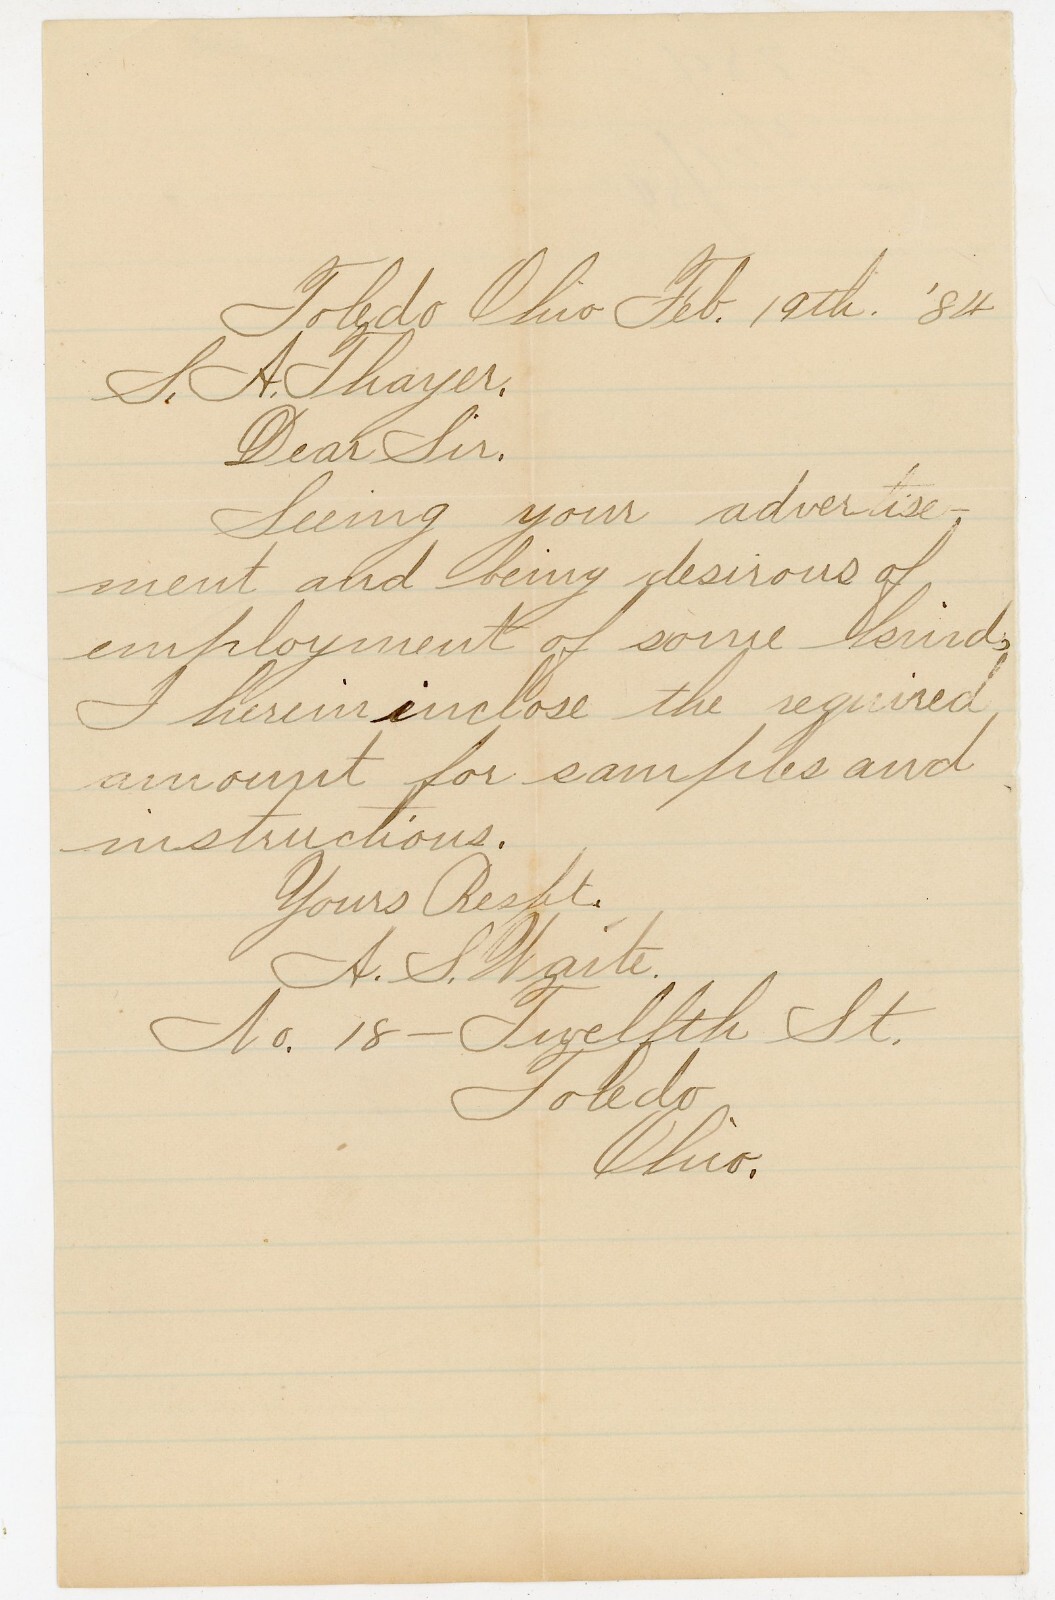 Toledo Ohio Feb. 19th. '84
S. A. Thayer.
Dear Sir.
Seeing your advertise-
ment and being desirous of
employment of some kind,
I herein inclose the required
amount for samples and
instructions.
Yours Respt.
A. S. Waite.
No. 18 — Twelfth St.
Toledo
Ohio.